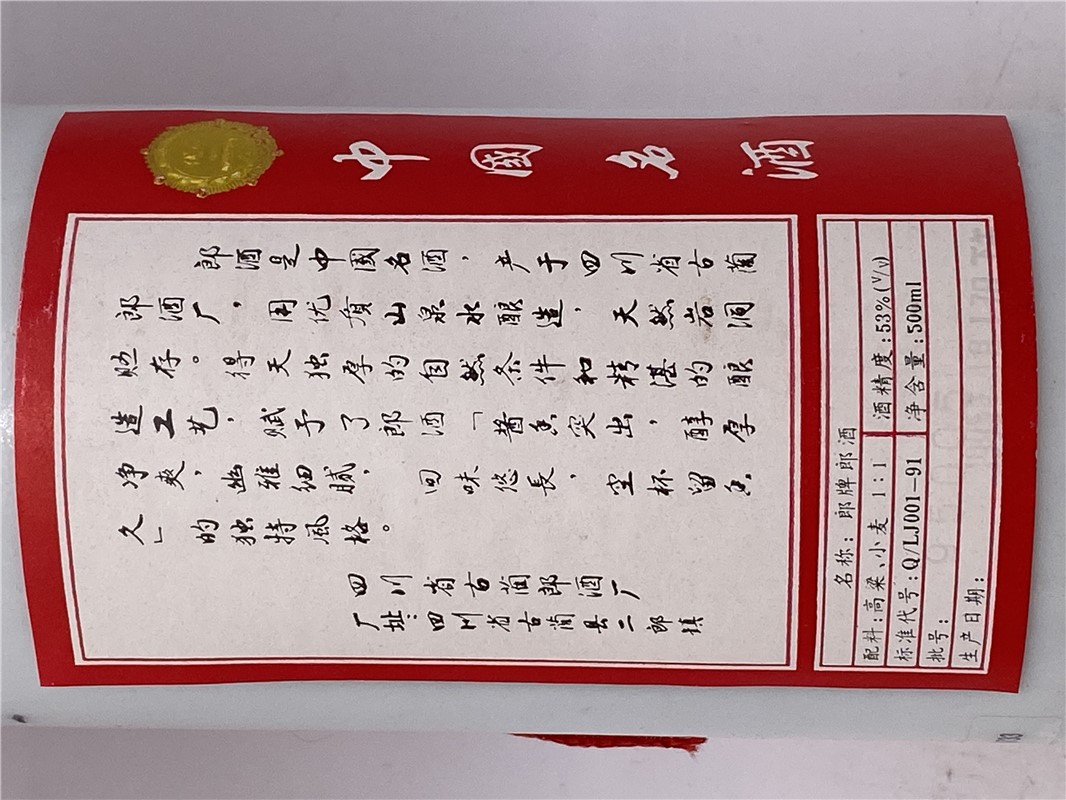 中國名酒
郎酒是中國名酒，产于四川省古蔺
郎酒厂，用优质山泉水酿造，天然岩洞
贮存。得天独厚的自然条件和精湛的酿
造工艺，赋予了郎酒「酱香突出，醇厚
净爽，幽雅细腻，回味悠長，空杯留香
久」的独特風格。
四川省古蔺郎酒厂
厂址：四川省古蔺县二郎镇
名称：郎牌郎酒
配料：高粱、小麦 1:1 酒精度:53%(V/V)
标准代号:Q/LJ001-91 净含量:500ml
批号：
生产日期：